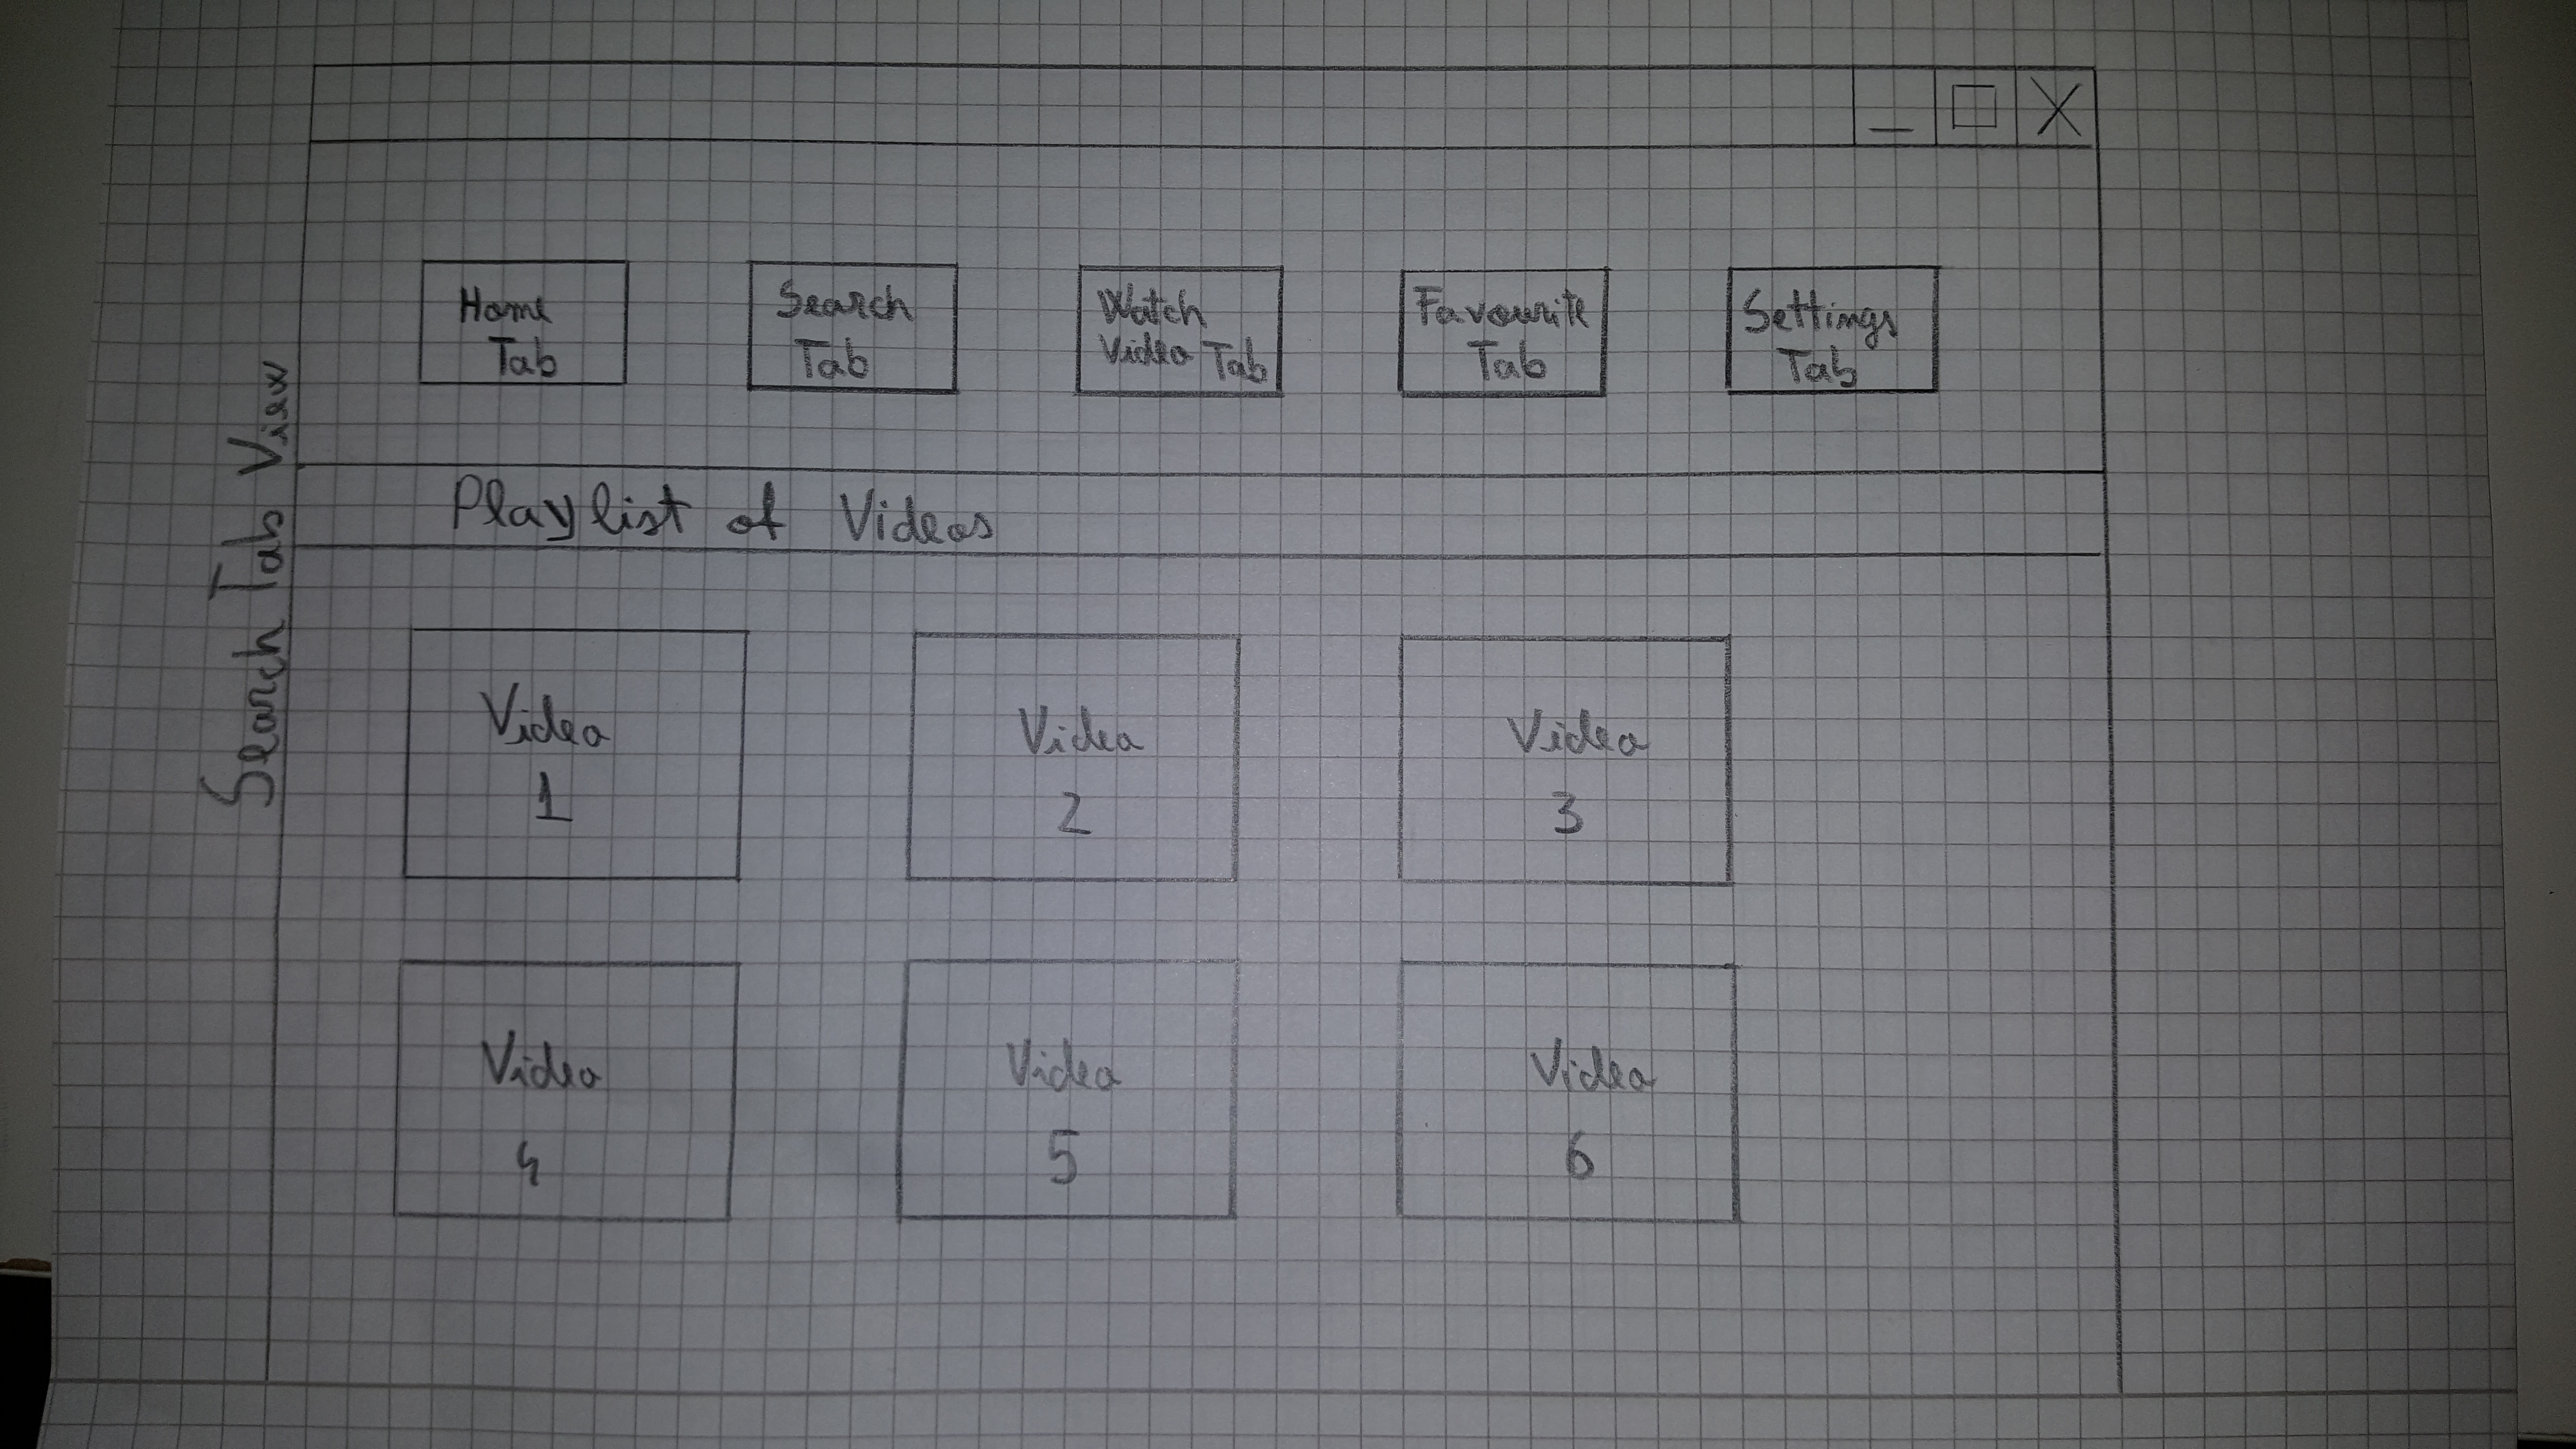 Search Tab View
Home
Tab
Search
Tab
Watch
Video Tab
Favourite
Tab
Settings
Tab
Playlist of Videos
Video
1
Video
2
Video
3
Video
4
Video
5
Video
6